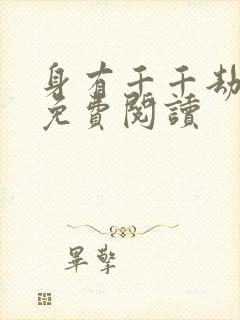 身有千千劫
免費閱讀
畢擎